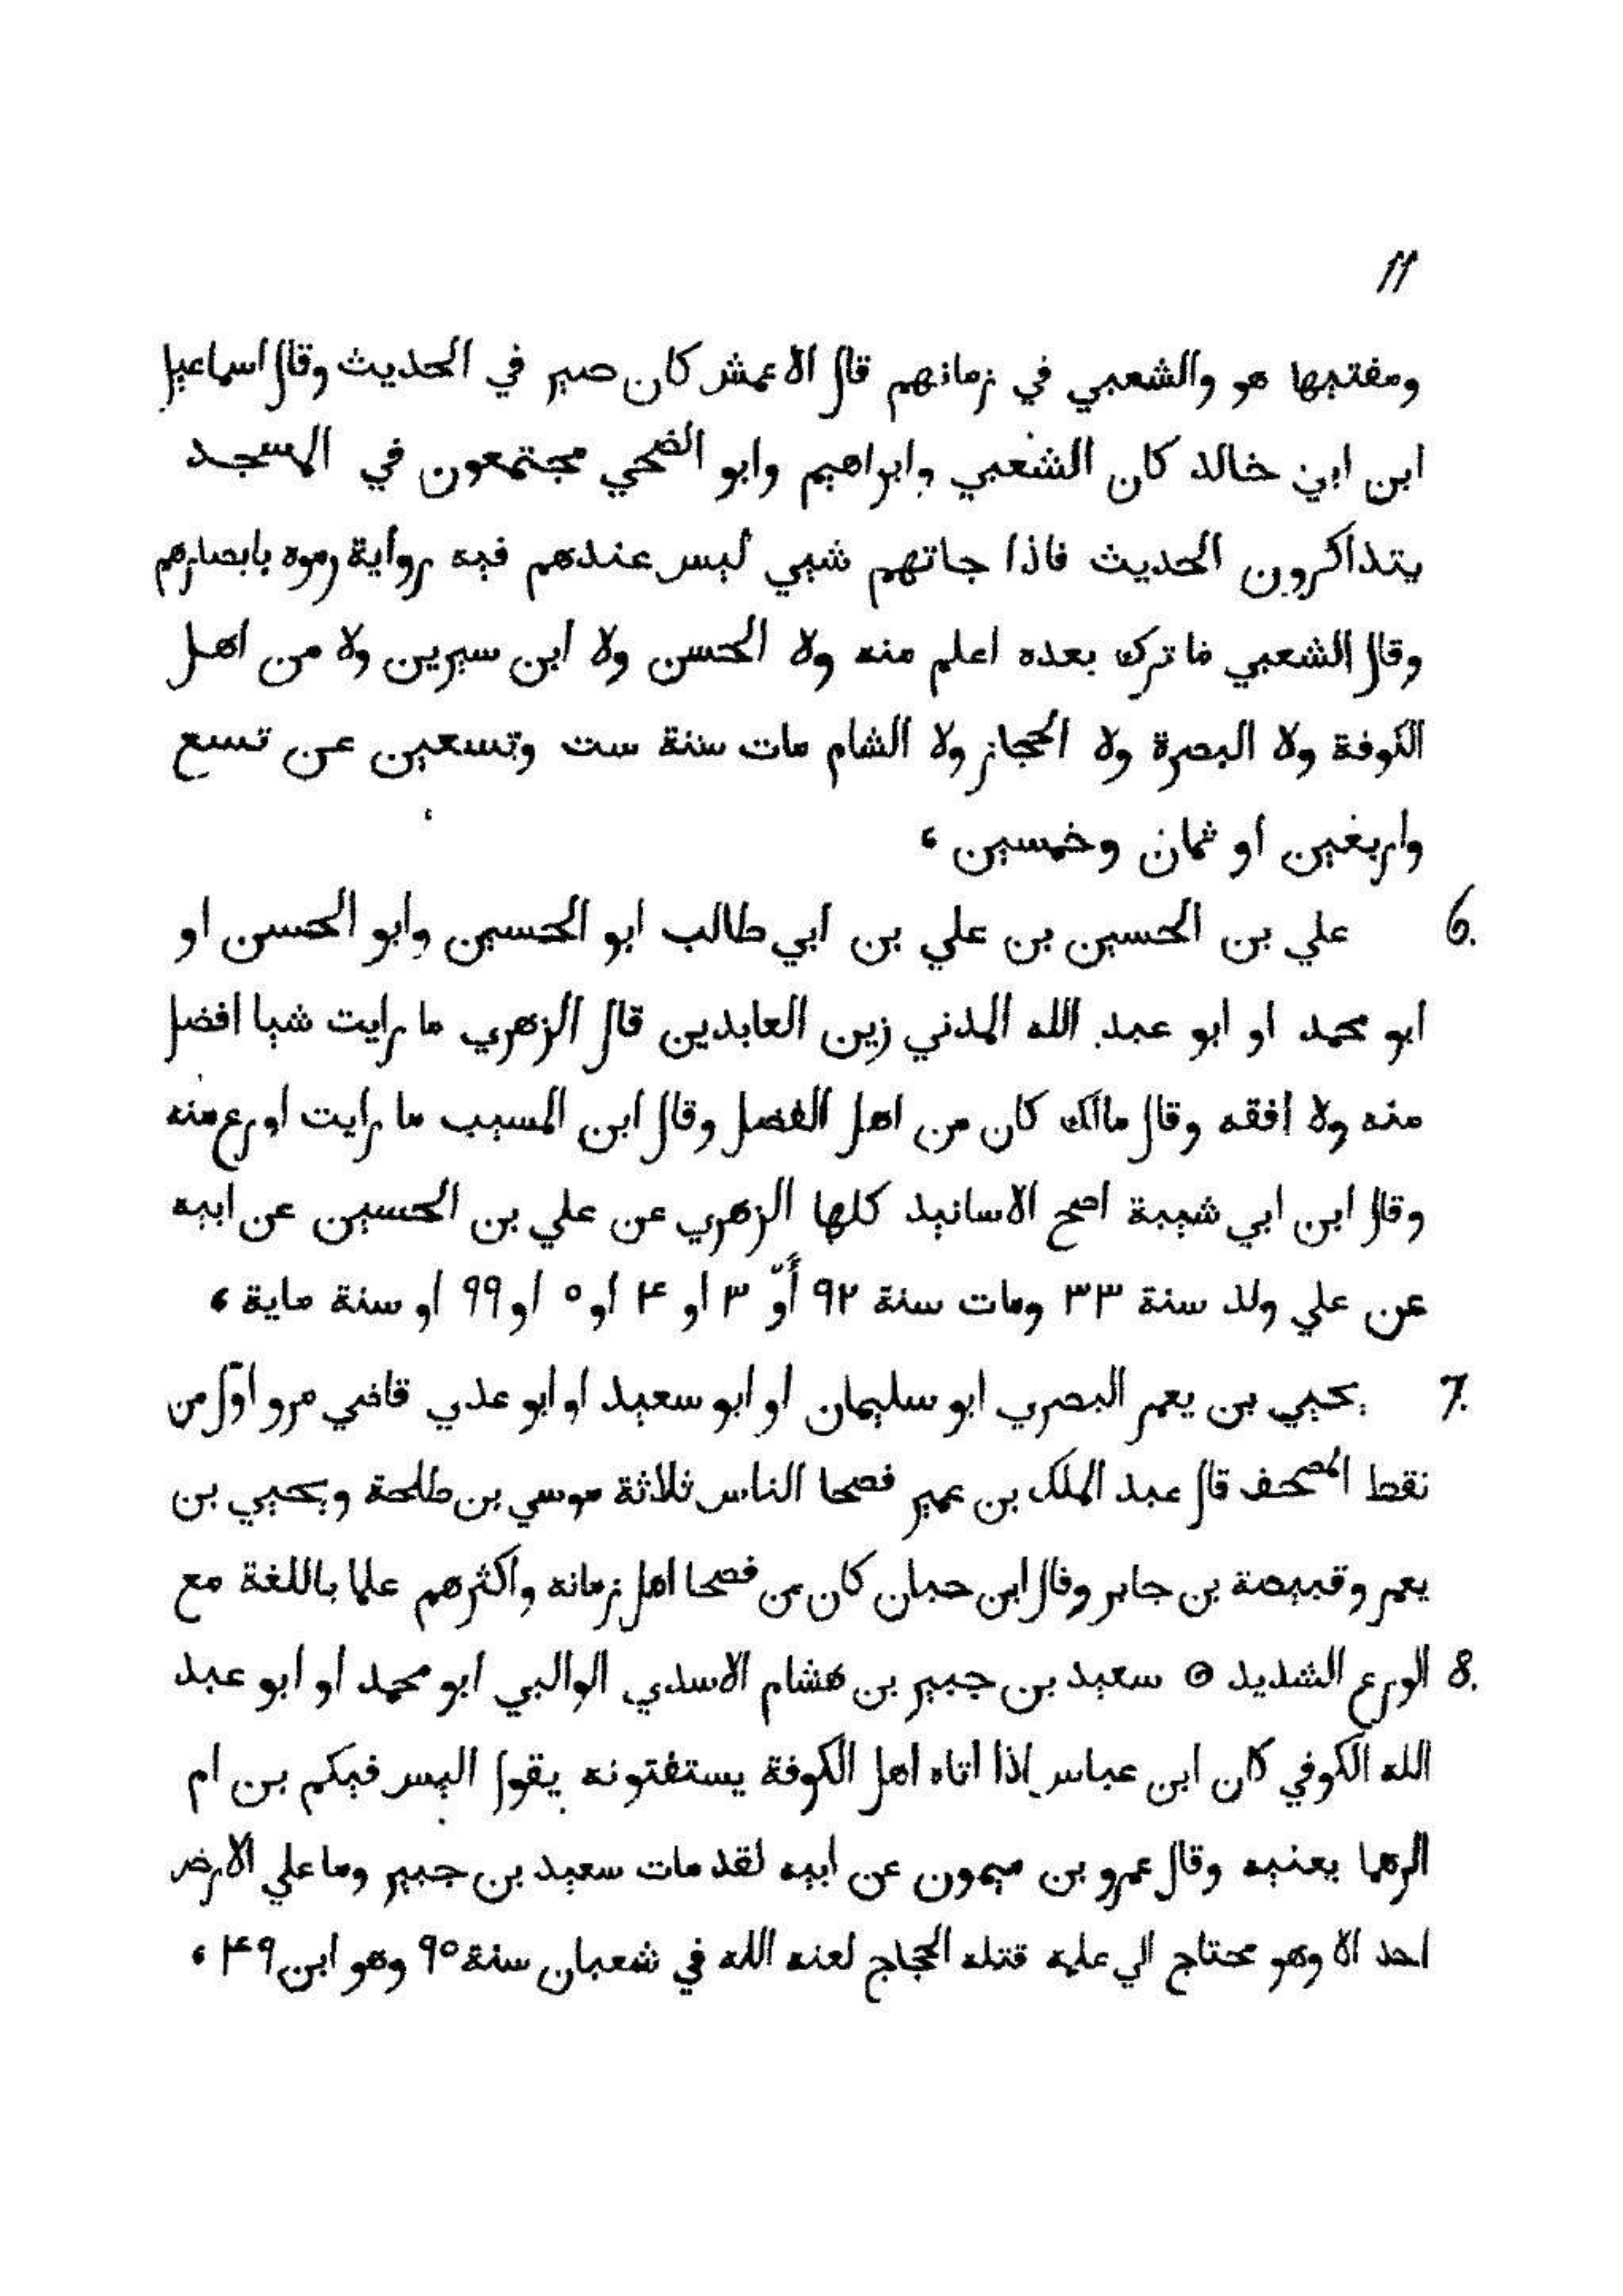 ١١
ومفتيها هو والشعبي في زمانهم قال الاعمش كان صير في الحديث وقال اسماعيل
ابن ابي خالد كان الشعبي وابراهيم وابو الضحي مجتمعون في المسجد
يتذاكرون الحديث فاذا جاتهم شيي ليس عندهم فيه رواية رموه بابصارهم
وقال الشعبي ما ترك بعده اعلم منه ولا الحسن ولا ابن سيرين ولا من اهل
الكوفة ولا البصرة ولا الحجاز ولا الشام مات سنة ست وتسعين عن تسع
واربغين او ثمان وخمسين ،
6. علي بن الحسين بن علي بن ابي طالب ابو الحسين وابو الحسن او
ابو محمد او ابو عبد الله المدني زين العابدين قال الزهري ما رايت شيا افضل
منه ولا افقه وقال مالك كان من اهل الفضل وقال ابن المسيب ما رايت اورع منه
وقال ابن ابي شيبة اصح الاسانيد كلها الزهري عن علي بن الحسين عن ابيه
عن علي ولد سنة ٣٣ ومات سنة ٩٢ أو ٣ او ۴ او ٥ او ٩٩ او سنة ماية ،
7. يحيي بن يعمر البصري ابو سليمان او ابو سعيد او ابو عدي قاضي مرو اول من
نقط المصحف قال عبد الملك بن عمير فصحا الناس ثلاثة موسي بن طلحة ويحيي بن
يعمر وقبيصة بن جابر وقال ابن حبان كان من فصحا اهل زمانه واكثرهم علما باللغة مع
8. الورع الشديد ⊙ سعيد بن جبير بن هشام الاسدي الوالبي ابو محمد او ابو عبد
الله الكوفي كان ابن عباس اذا اتاه اهل الكوفة يستفتونه يقول اليس فيكم بن ام
الرهما يعنيه وقال عمرو بن ميمون عن ابيه لقد مات سعيد بن جبير وما علي الارض
احد الا وهو محتاج الي علمه قتله الحجاج لعنه الله في شعبان سنة ٩٥ وهو ابن ۴٩ ،